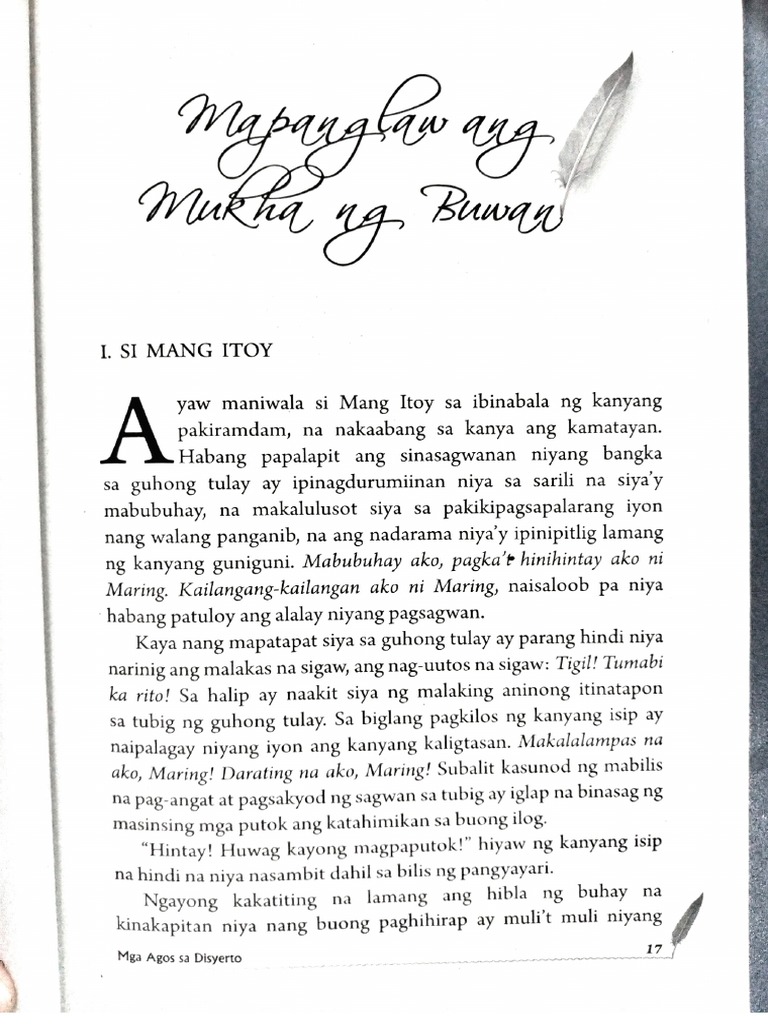 Mapanglaw ang
Mukha ng Buwan
I. SI MANG ITOY
Ayaw maniwala si Mang Itoy sa ibinabala ng kanyang
pakiramdam, na nakaabang sa kanya ang kamatayan.
Habang papalapit ang sinasagwanan niyang bangka
sa guhong tulay ay ipinagdurumiinan niya sa sarili na siya'y
mabubuhay, na makalulusot siya sa pakikipagsapalarang iyon
nang walang panganib, na ang nadarama niya'y ipinipitlig lamang
ng kanyang guniguni. Mabubuhay ako, pagka't hinihintay ako ni
Maring. Kailangang-kailangan ako ni Maring, naisaloob pa niya
habang patuloy ang alalay niyang pagsagwan.
Kaya nang mapatapat siya sa guhong tulay ay parang hindi niya
narinig ang malakas na sigaw, ang nag-uutos na sigaw: Tigil! Tumabi
ka rito! Sa halip ay naakit siya ng malaking aninong itinatapon
sa tubig ng guhong tulay. Sa biglang pagkilos ng kanyang isip ay
naipalagay niyang iyon ang kanyang kaligtasan. Makalalampas na
ako, Maring! Darating na ako, Maring! Subalit kasunod ng mabilis
na pag-angat at pagsakyod ng sagwan sa tubig ay iglap na binasag ng
masinsing mga putok ang katahimikan sa buong ilog.
"Hintay! Huwag kayong magpaputok!" hiyaw ng kanyang isip
na hindi na niya nasambit dahil sa bilis ng pangyayari.
Ngayong kakatiting na lamang ang hibla ng buhay na
kinakapitan niya nang buong paghihirap ay muli't muli niyang
Mga Agos sa Disyerto
17